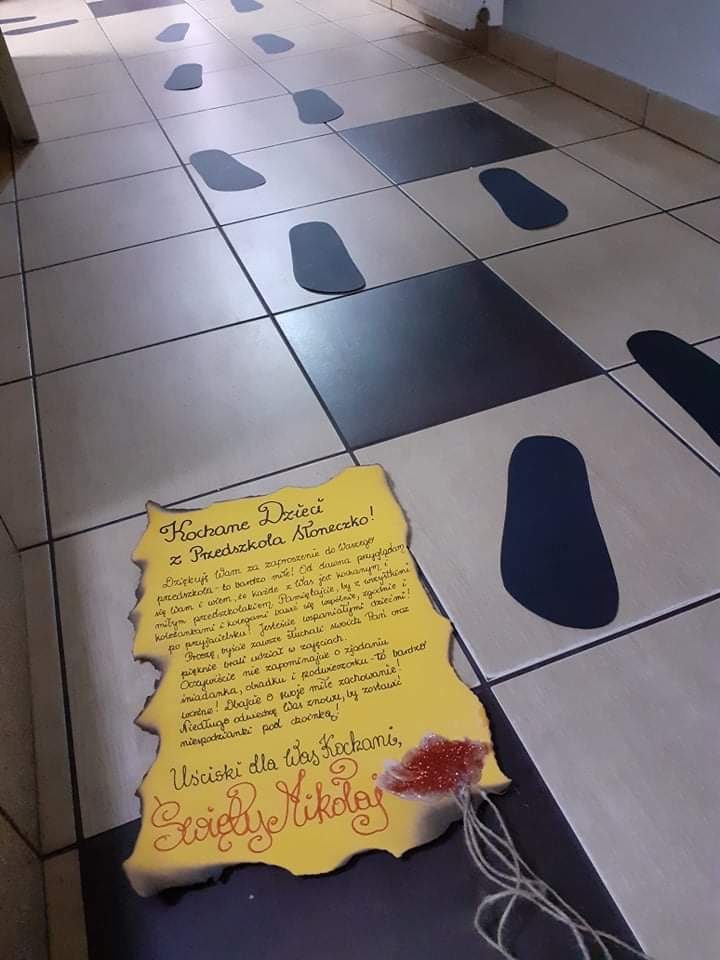 Kochane Dzieci
z Przedszkola Słoneczko!
Dziękuję Wam za zaproszenie do Waszego
przedszkola - to bardzo miłe! Od dawna przyglądam
się Wam i wiem, że każde z Was jest kochanym i
miłym przedszkolakiem. Pamiętajcie, by z wszystkimi
koleżankami i kolegami bawić się wspólnie, zgodnie i
po przyjacielsku! Jesteście wspaniałymi dziećmi!
Proszę, byście zawsze słuchali swoich Pań oraz
pięknie brali udział w zajęciach.
Oczywiście nie zapominajcie o zjadaniu
śniadanka, obiadku i podwieczorku - to bardzo
ważne! Dbajcie o swoje miłe zachowanie!
Niedługo odwiedzę Was znowu, by zostawić
niespodzianki pod choinką!
Uściski dla Was Kochani,
Święty Mikołaj